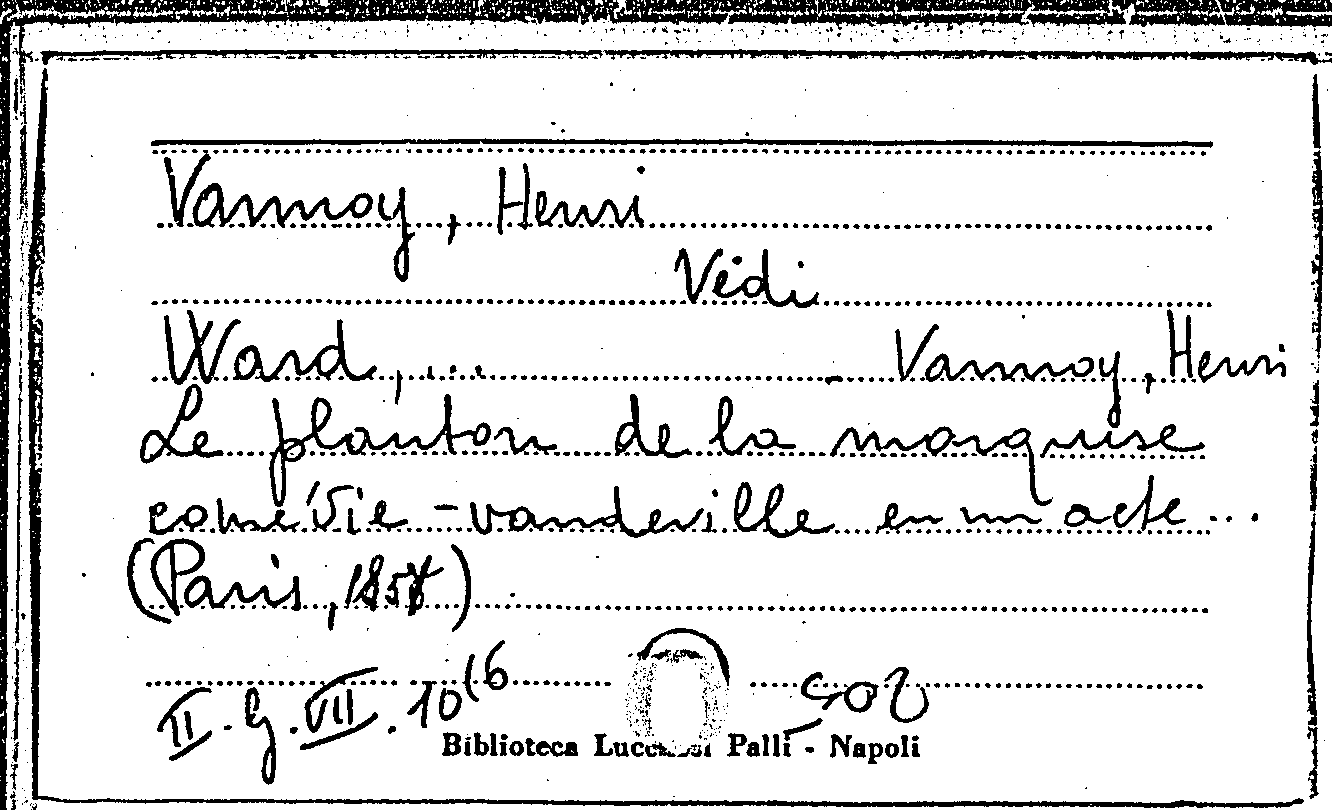 Vannoy, Henri
Vedi
Ward, ... - Vannoy, Henri
Le planton de la marquise
comédie-vaudeville en un acte...
(Paris, 1857)
II. G. VII. 10(6
Biblioteca Lucchesi Palli - Napoli